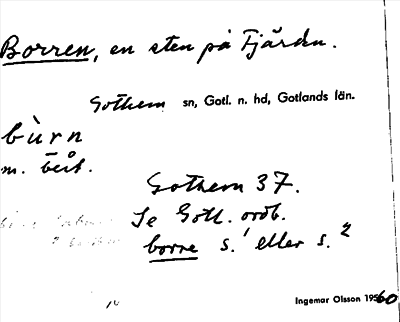 Borren, en sten på Fjärdn.
Gothem sn, Gotl. n. hd, Gotlands län.
bùrn
m. best.
Gothem 37.
Se Gotl. ordb.
borre s.1 eller s.2
Ingemar Olsson 1960